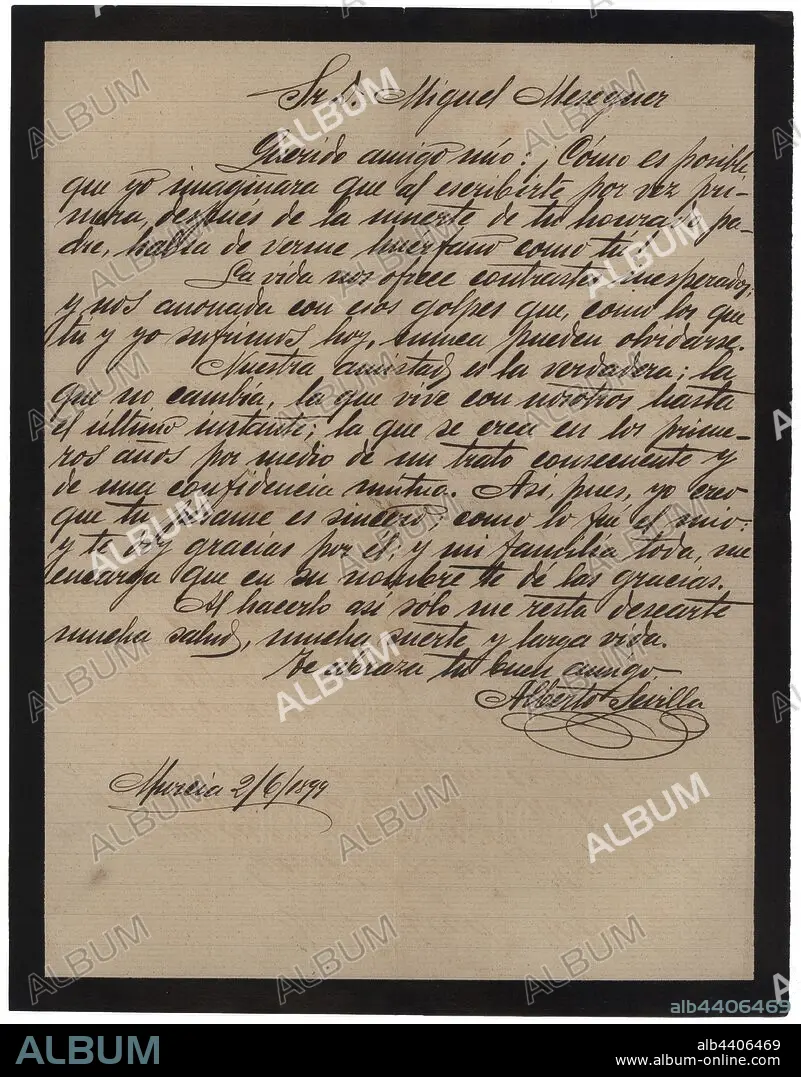 Sr. D. Miguel Meseguer
Querido amigo mío: ¡Cómo es posible
que yo imaginara que al escribirte por vez pri-
mera, después de la muerte de tu honrado pa-
dre, había de verme huérfano como tú!
La vida nos ofrece contrastes inesperados,
y nos anonada con esos golpes que, como los que
tú y yo sufrimos hoy, nunca pueden olvidarse.
Nuestra amistad es la verdadera; la
que no cambia, la que vive con nosotros hasta
el último instante; la que se crea en los prime-
ros años por medio de un trato consecuente y
de una confidencia mutua. Así, pues, yo creo
que tu pésame es sincero, como lo fué el mío:
y te doy gracias por él; y mi familia toda, me
encarga que en su nombre te dé las gracias.
Al hacerlo así solo me resta desearte
mucha salud, mucha suerte y larga vida.
Te abraza tu buen amigo
Alberto Sevilla
Murcia 2/6/1899
ALBUM
alb4406469
ALBUM
alb4406469
www.album-online.com